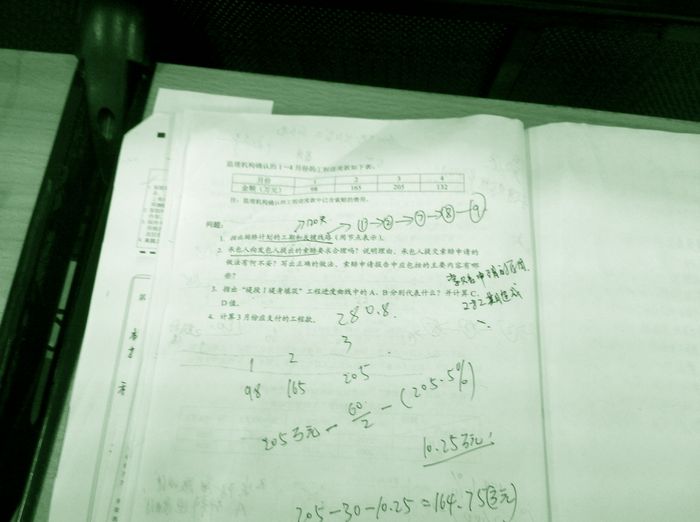 监理机构确认的1~4月份的工程进度款如下表。
月份 1 2 3 4
金额（万元） 98 165 205 132
注：监理机构确认的工程进度款中已含索赔的费用。
120天 ①-②-⑦-⑧-⑨
问题：
1. 指出网络计划的工期和关键线路（用节点表示）。
2. 承包人向发包人提出的索赔要求合理吗？说明理由。承包人提交索赔申请的
做法有何不妥？写出正确的做法。索赔申请报告中应包括的主要内容有哪
些？
3. 指出“堤段Ⅰ堤身填筑”工程进度曲线中的A、B分别代表什么？并计算C、
D值。
4. 计算3月份应支付的工程款。
280.8.
1 2 3
98 165 205
205万元 - 60/2 - (205·5%)
10.25万元
205-30-10.25=164.75(万元)
第